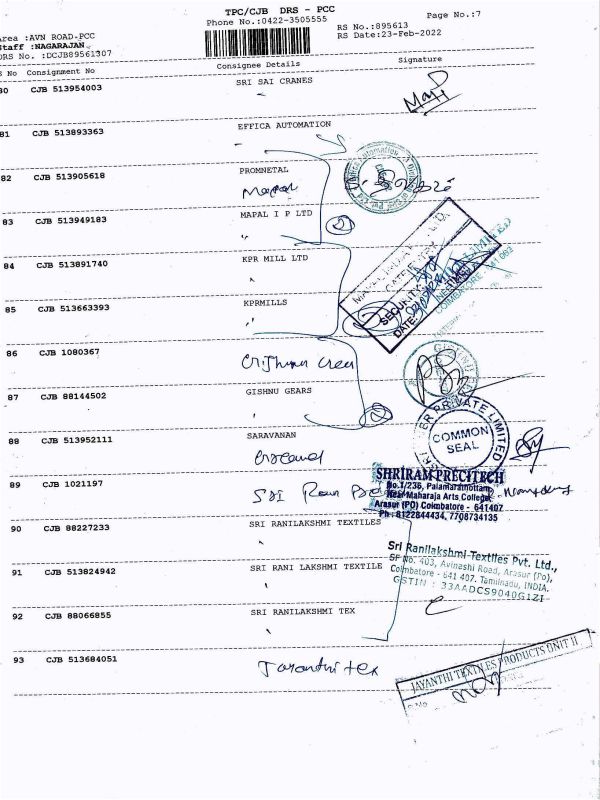 TPC/CJB DRS - PCC
Phone No.:0422-3505555
Page No.:7
RS No.:895613
RS Date:23-Feb-2022
Area :AVN ROAD-PCC
Staff :NAGARAJAN
DRS No. :DCJB89561307
S No Consignment No Consignee Details Signature
80 CJB 513954003 SRI SAI CRANES
81 CJB 513893363 EFFICA AUTOMATION
82 CJB 513905618 PROMNETAL
Mapal
83 CJB 513949183 MAPAL I P LTD
84 CJB 513891740 KPR MILL LTD
85 CJB 513663393 KPRMILLS
86 CJB 1080367
87 CJB 88144502 GISHNU GEARS
88 CJB 513952111 SARAVANAN
89 CJB 1021197
90 CJB 88227233 SRI RANILAKSHMI TEXTILES
91 CJB 513824942 SRI RANI LAKSHMI TEXTILE
92 CJB 88066855 SRI RANILAKSHMI TEX
93 CJB 513684051
Jayanthi tex
SECURITY
DATE
COMMON
SEAL
PRIVATE LIMITED
SHRIRAM PRECITECH
No.1/236, Palamarathottam,
Near Maharaja Arts College,
Arasur (PO) Coimbatore - 641407
Ph : 8122844434, 7708734135
Sri Ranilakshmi Textiles Pvt. Ltd.,
SF No. 403, Avinashi Road, Arasur (Po),
Coimbatore - 641 407. Tamilnadu, INDIA.
GSTIN : 33AADCS9040G1ZI
JAYANTHI TEXTILES PRODUCTS UNIT II